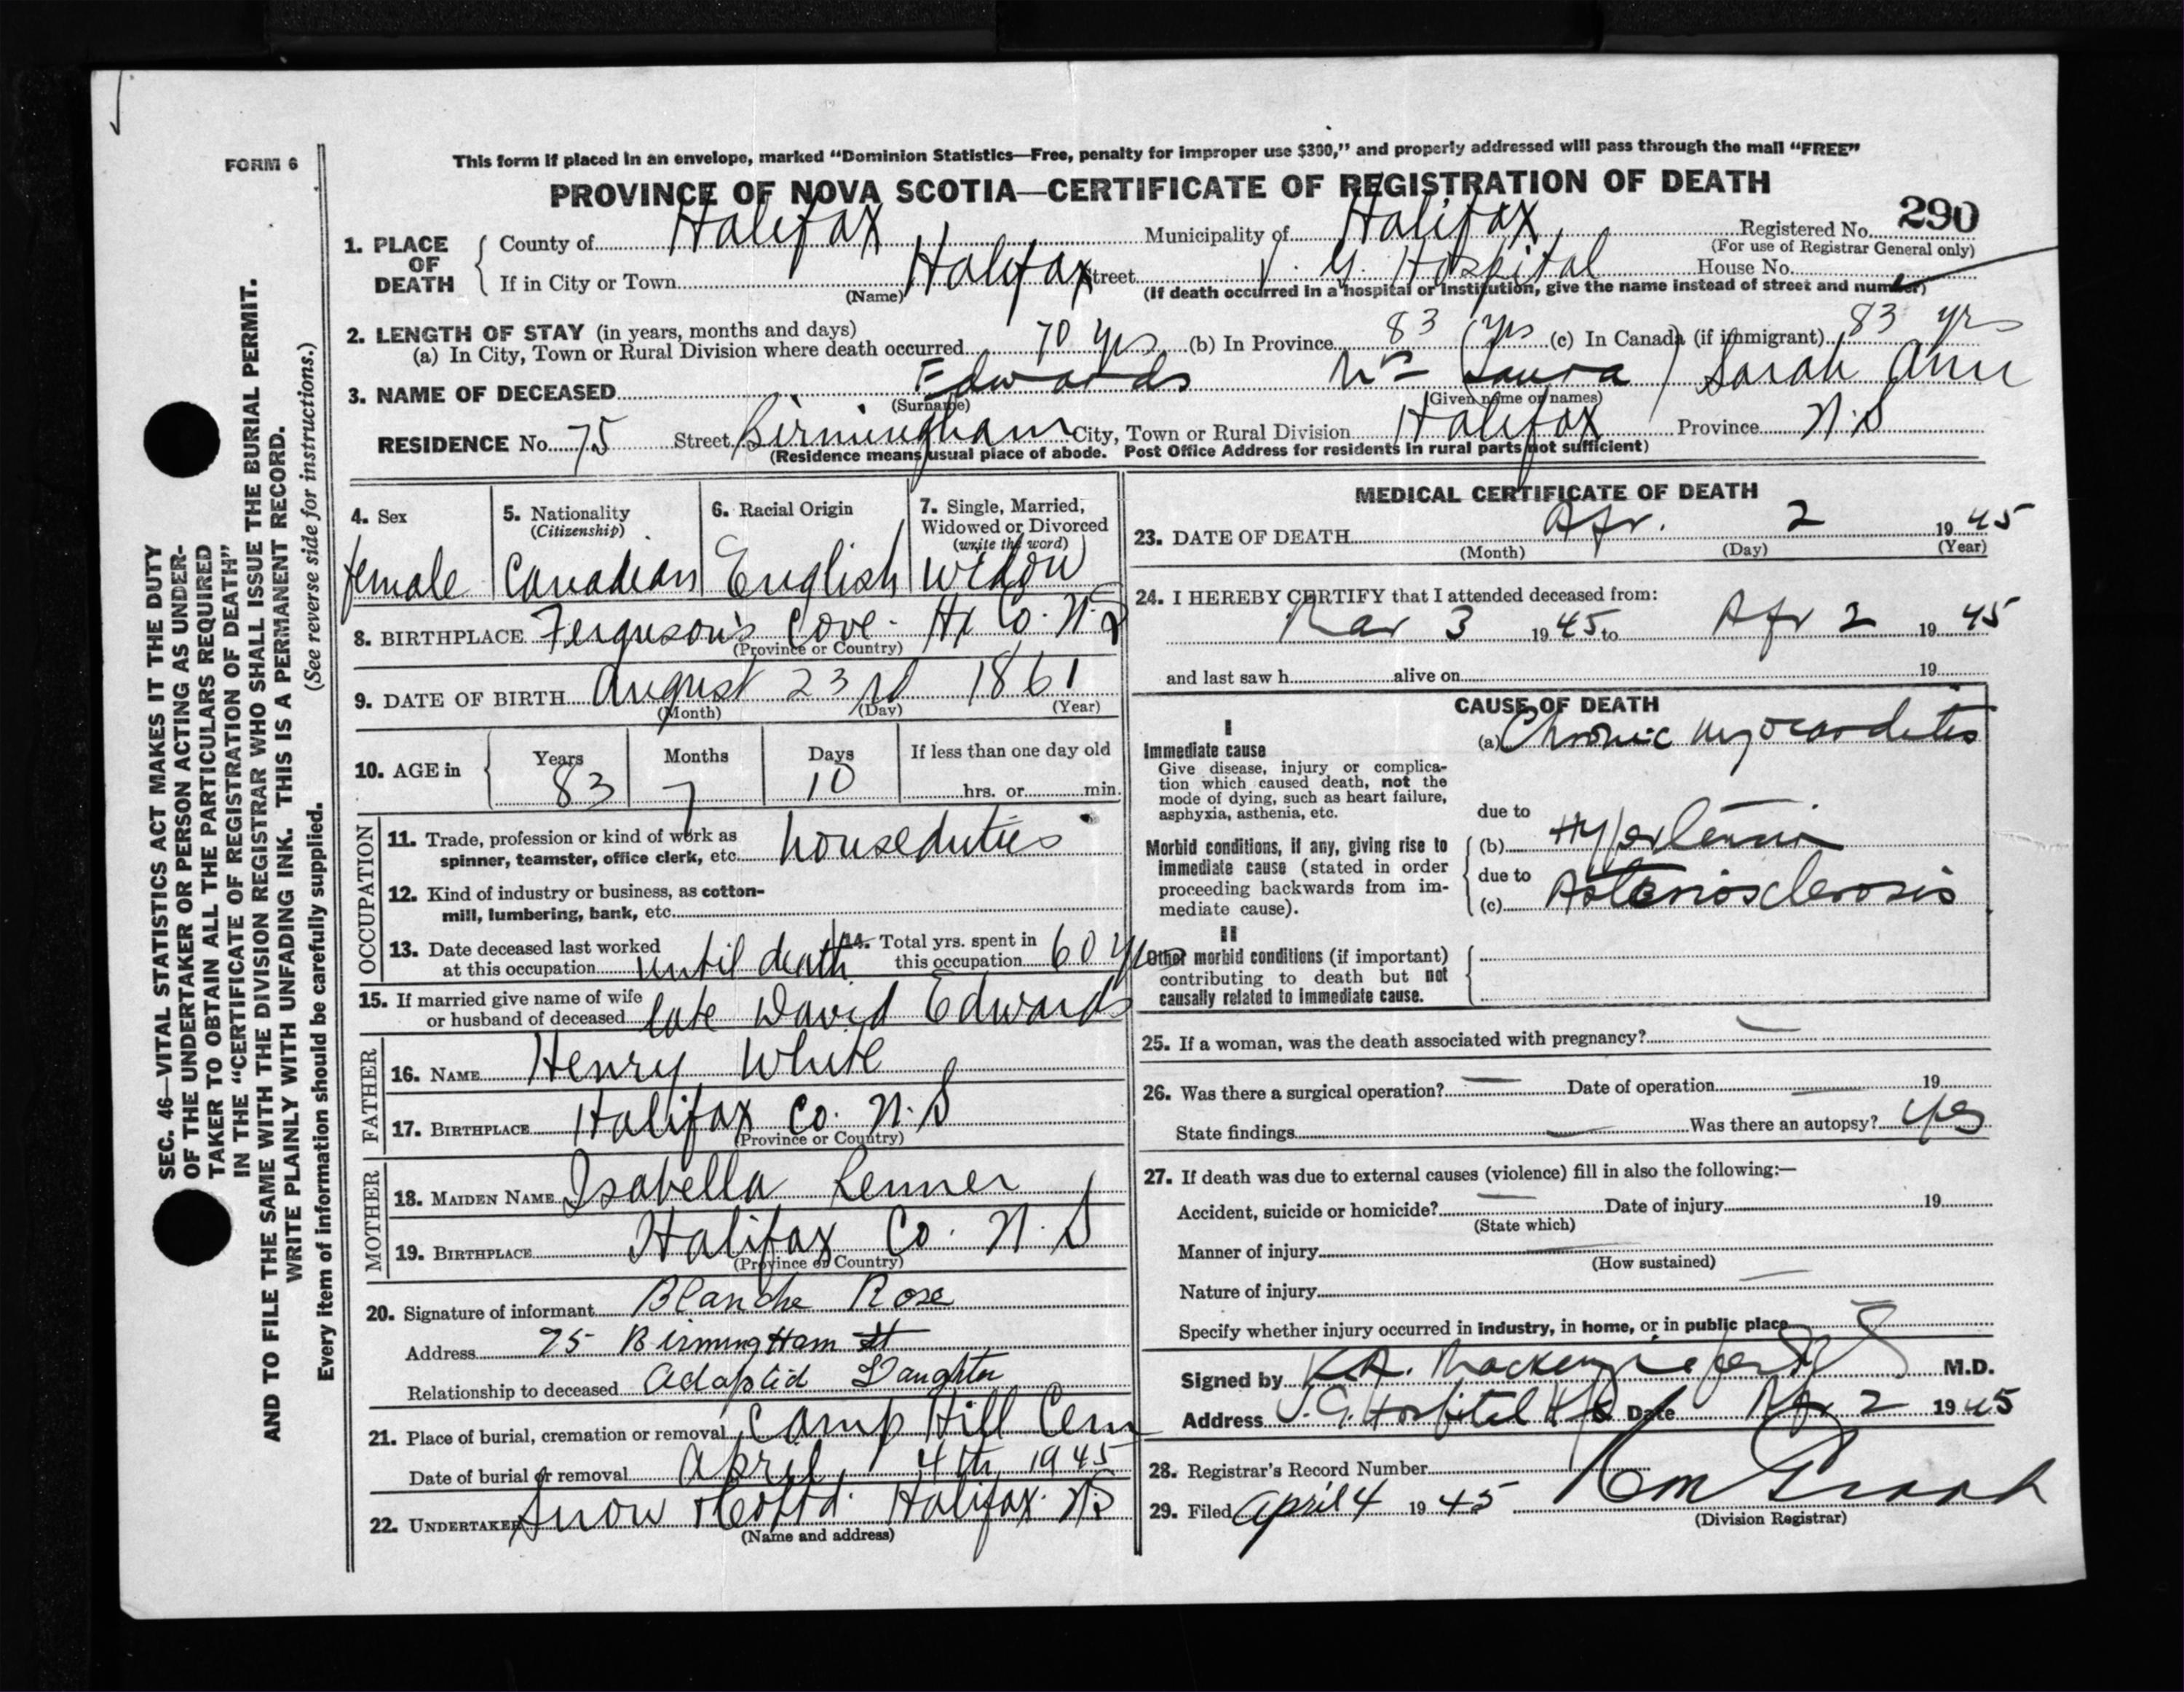 FORM 6
This form if placed in an envelope, marked "Dominion Statistics—Free, penalty for improper use $300," and properly addressed will pass through the mail "FREE"
PROVINCE OF NOVA SCOTIA—CERTIFICATE OF REGISTRATION OF DEATH
290
1. PLACE OF DEATH County of Halifax Municipality of Halifax Registered No.
(For use of Registrar General only)
If in City or Town Halifax Street V. G. Hospital House No.
(Name) (If death occurred in a hospital or institution, give the name instead of street and number)
2. LENGTH OF STAY (in years, months and days)
(a) In City, Town or Rural Division where death occurred 70 yrs (b) In Province 83 yrs (c) In Canada (if immigrant) 83 yrs
3. NAME OF DECEASED Edwards Mrs (Laura) Sarah Ann
(Surname) (Given name or names)
RESIDENCE No. 75 Street Birmingham City, Town or Rural Division Halifax Province N.S
(Residence means usual place of abode. Post Office Address for residents in rural parts not sufficient)
4. Sex female
5. Nationality (Citizenship) Canadian
6. Racial Origin English
7. Single, Married, Widowed or Divorced (write the word) widow
8. BIRTHPLACE Ferguson's Cove. Hx Co. N.S
(Province or Country)
9. DATE OF BIRTH August 23rd 1861
(Month) (Day) (Year)
10. AGE in Years 83 Months 7 Days 10 If less than one day old
hrs. or min.
OCCUPATION
11. Trade, profession or kind of work as
spinner, teamster, office clerk, etc. houseduties
12. Kind of industry or business, as cotton-
mill, lumbering, bank, etc.
13. Date deceased last worked
at this occupation until death
14. Total yrs. spent in
this occupation 60 yrs
15. If married give name of wife
or husband of deceased late David Edwards
FATHER
16. NAME Henry White
17. BIRTHPLACE Halifax Co. N.S
(Province or Country)
MOTHER
18. MAIDEN NAME Isabella Lenner
19. BIRTHPLACE Halifax Co. N.S
(Province or Country)
20. Signature of informant Blanche Rose
Address 75 Birmingham St
Relationship to deceased Adaptid Daughter
21. Place of burial, cremation or removal Camp Hill Cem
Date of burial or removal April 4th 1945
22. UNDERTAKER Snow & Co Ltd. Halifax. N.S
(Name and address)
MEDICAL CERTIFICATE OF DEATH
23. DATE OF DEATH Apr. 2 1945
(Month) (Day) (Year)
24. I HEREBY CERTIFY that I attended deceased from:
Mar 3 1945 to Apr 2 1945
and last saw h alive on 19
CAUSE OF DEATH
I
Immediate cause
Give disease, injury or complica-
tion which caused death, not the
mode of dying, such as heart failure,
asphyxia, asthenia, etc.
(a) Chronic myocarditis
due to
Morbid conditions, if any, giving rise to
immediate cause (stated in order
proceeding backwards from im-
mediate cause).
(b) Hypertension
due to
(c) Arteriosclerosis
II
Other morbid conditions (if important)
contributing to death but not
causally related to immediate cause.
25. If a woman, was the death associated with pregnancy? —
26. Was there a surgical operation? — Date of operation — 19
State findings — Was there an autopsy? yes
27. If death was due to external causes (violence) fill in also the following:—
Accident, suicide or homicide? — Date of injury 19
(State which)
Manner of injury —
(How sustained)
Nature of injury —
Specify whether injury occurred in industry, in home, or in public place —
Signed by K.A. Mackenzie per M.D.
Address V.G. Hospital Hfx Date Apr 2 1945
28. Registrar's Record Number
29. Filed April 4 1945
(Division Registrar)
SEC. 46—VITAL STATISTICS ACT MAKES IT THE DUTY
OF THE UNDERTAKER OR PERSON ACTING AS UNDER-
TAKER TO OBTAIN ALL THE PARTICULARS REQUIRED
IN THE "CERTIFICATE OF REGISTRATION OF DEATH"
AND TO FILE THE SAME WITH THE DIVISION REGISTRAR WHO SHALL ISSUE THE BURIAL PERMIT.
WRITE PLAINLY WITH UNFADING INK. THIS IS A PERMANENT RECORD.
Every item of information should be carefully supplied. (See reverse side for instructions.)